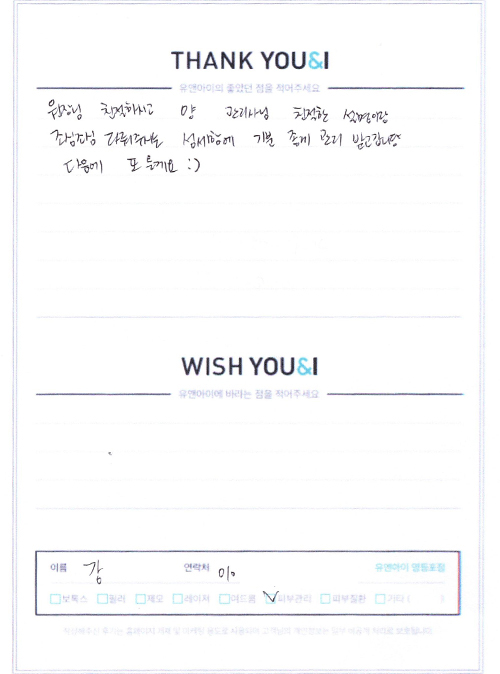 THANK YOU&I
유앤아이의 좋았던 점을 적어주세요
원장님 친절하시고 양 관리사님 친절한 설명이랑
조심조심 다뤄주는 섬세함에 기분 좋게 관리 받고갑니당
다음에 또 올게요 :)
WISH YOU&I
유앤아이에 바라는 점을 적어주세요
이름 강 연락처 010 유앤아이 영등포점
보톡스 필러 제모 레이저 여드름 피부관리 피부질환 기타 ( )